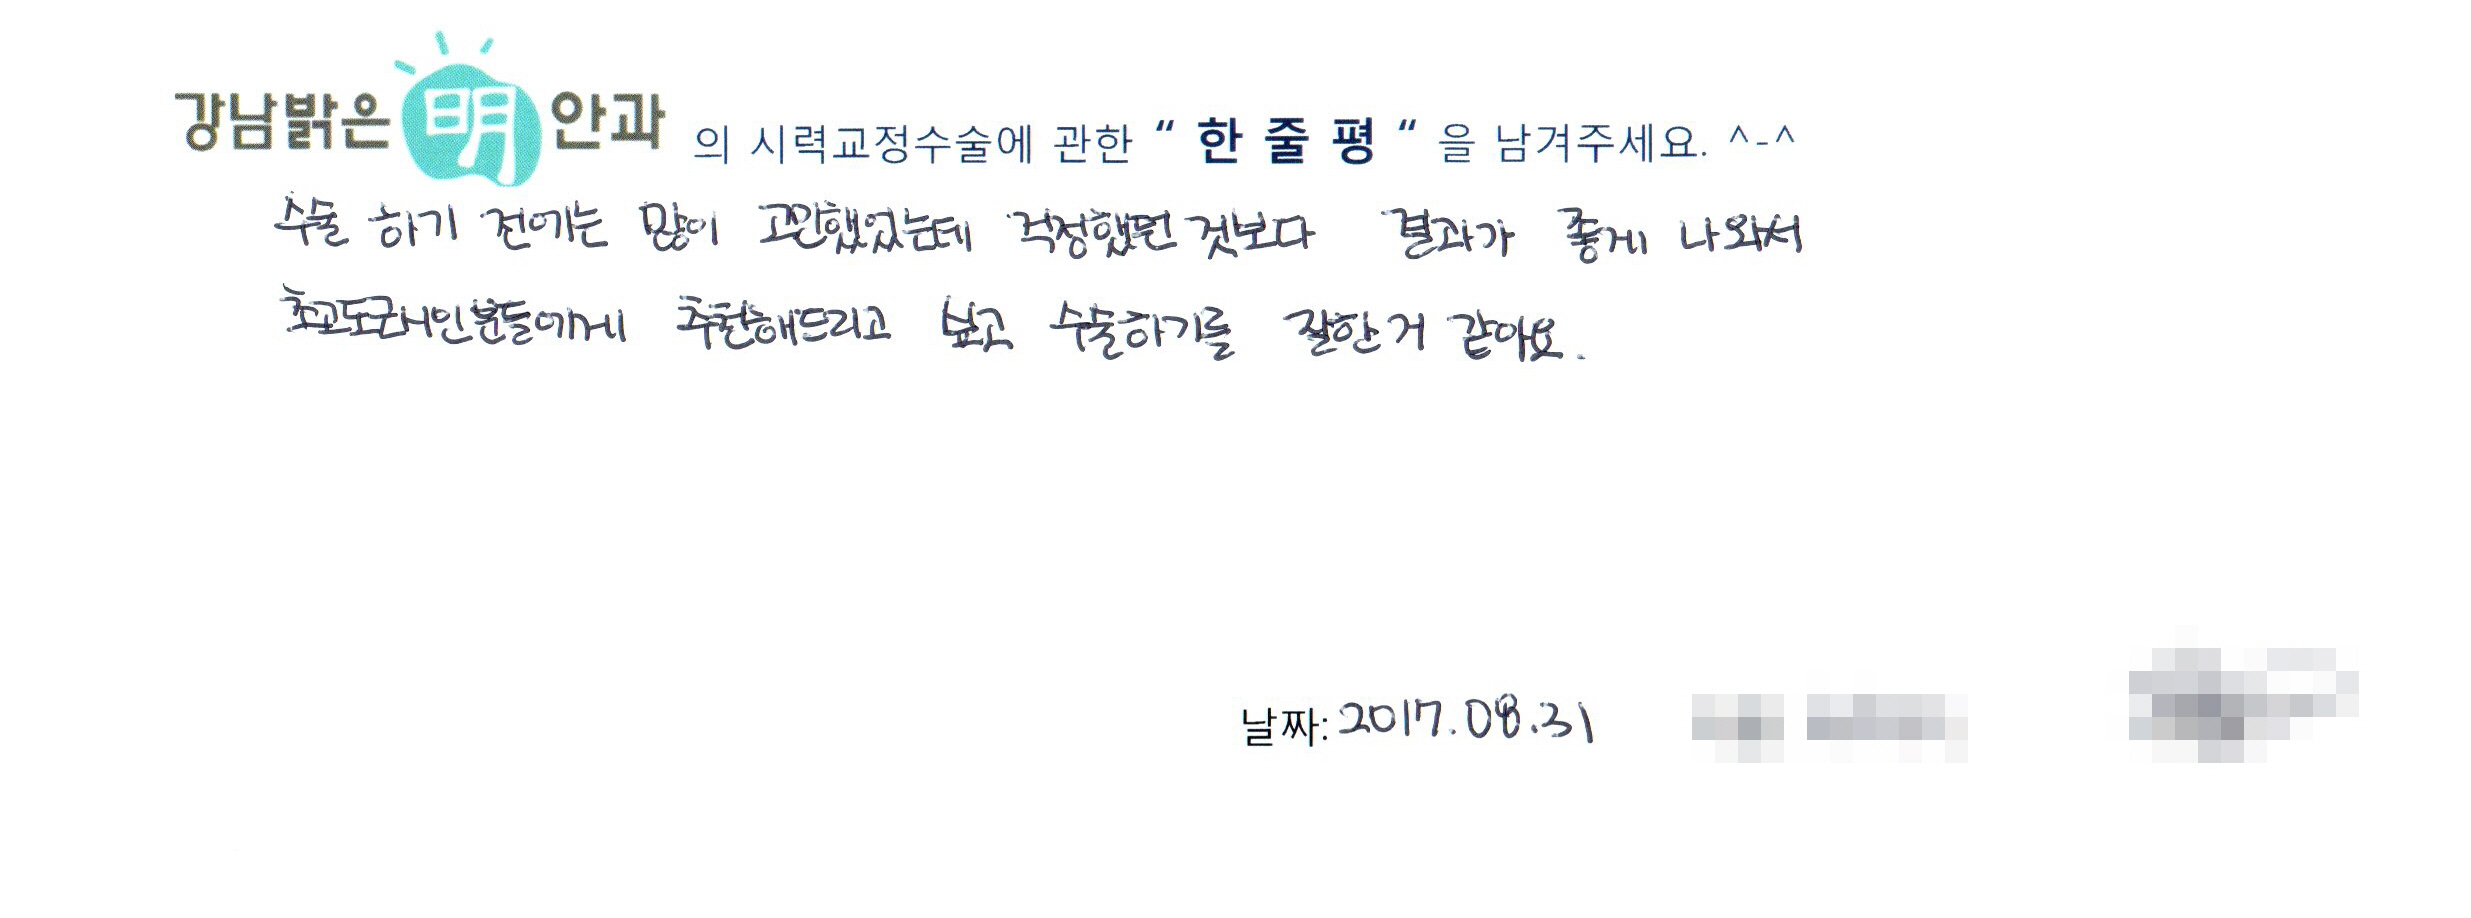 강남밝은 明 안과 의 시력교정수술에 관한 “ 한 줄 평 “ 을 남겨주세요. ^-^
수술 하기 전에는 많이 고민했었는데 걱정했던 것보다 결과가 좋게 나와서
초고도근시인분들에게 추천해드리고 싶고 수술하기를 잘한 거 같아요.
날짜: 2017.08.31